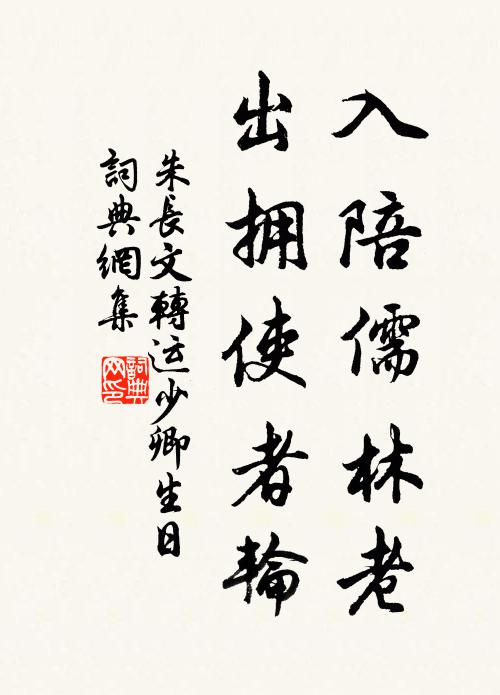 入陪儒林老
出拥使者輪
朱長文轉运少卿生日
詞典網集
詞典
网印